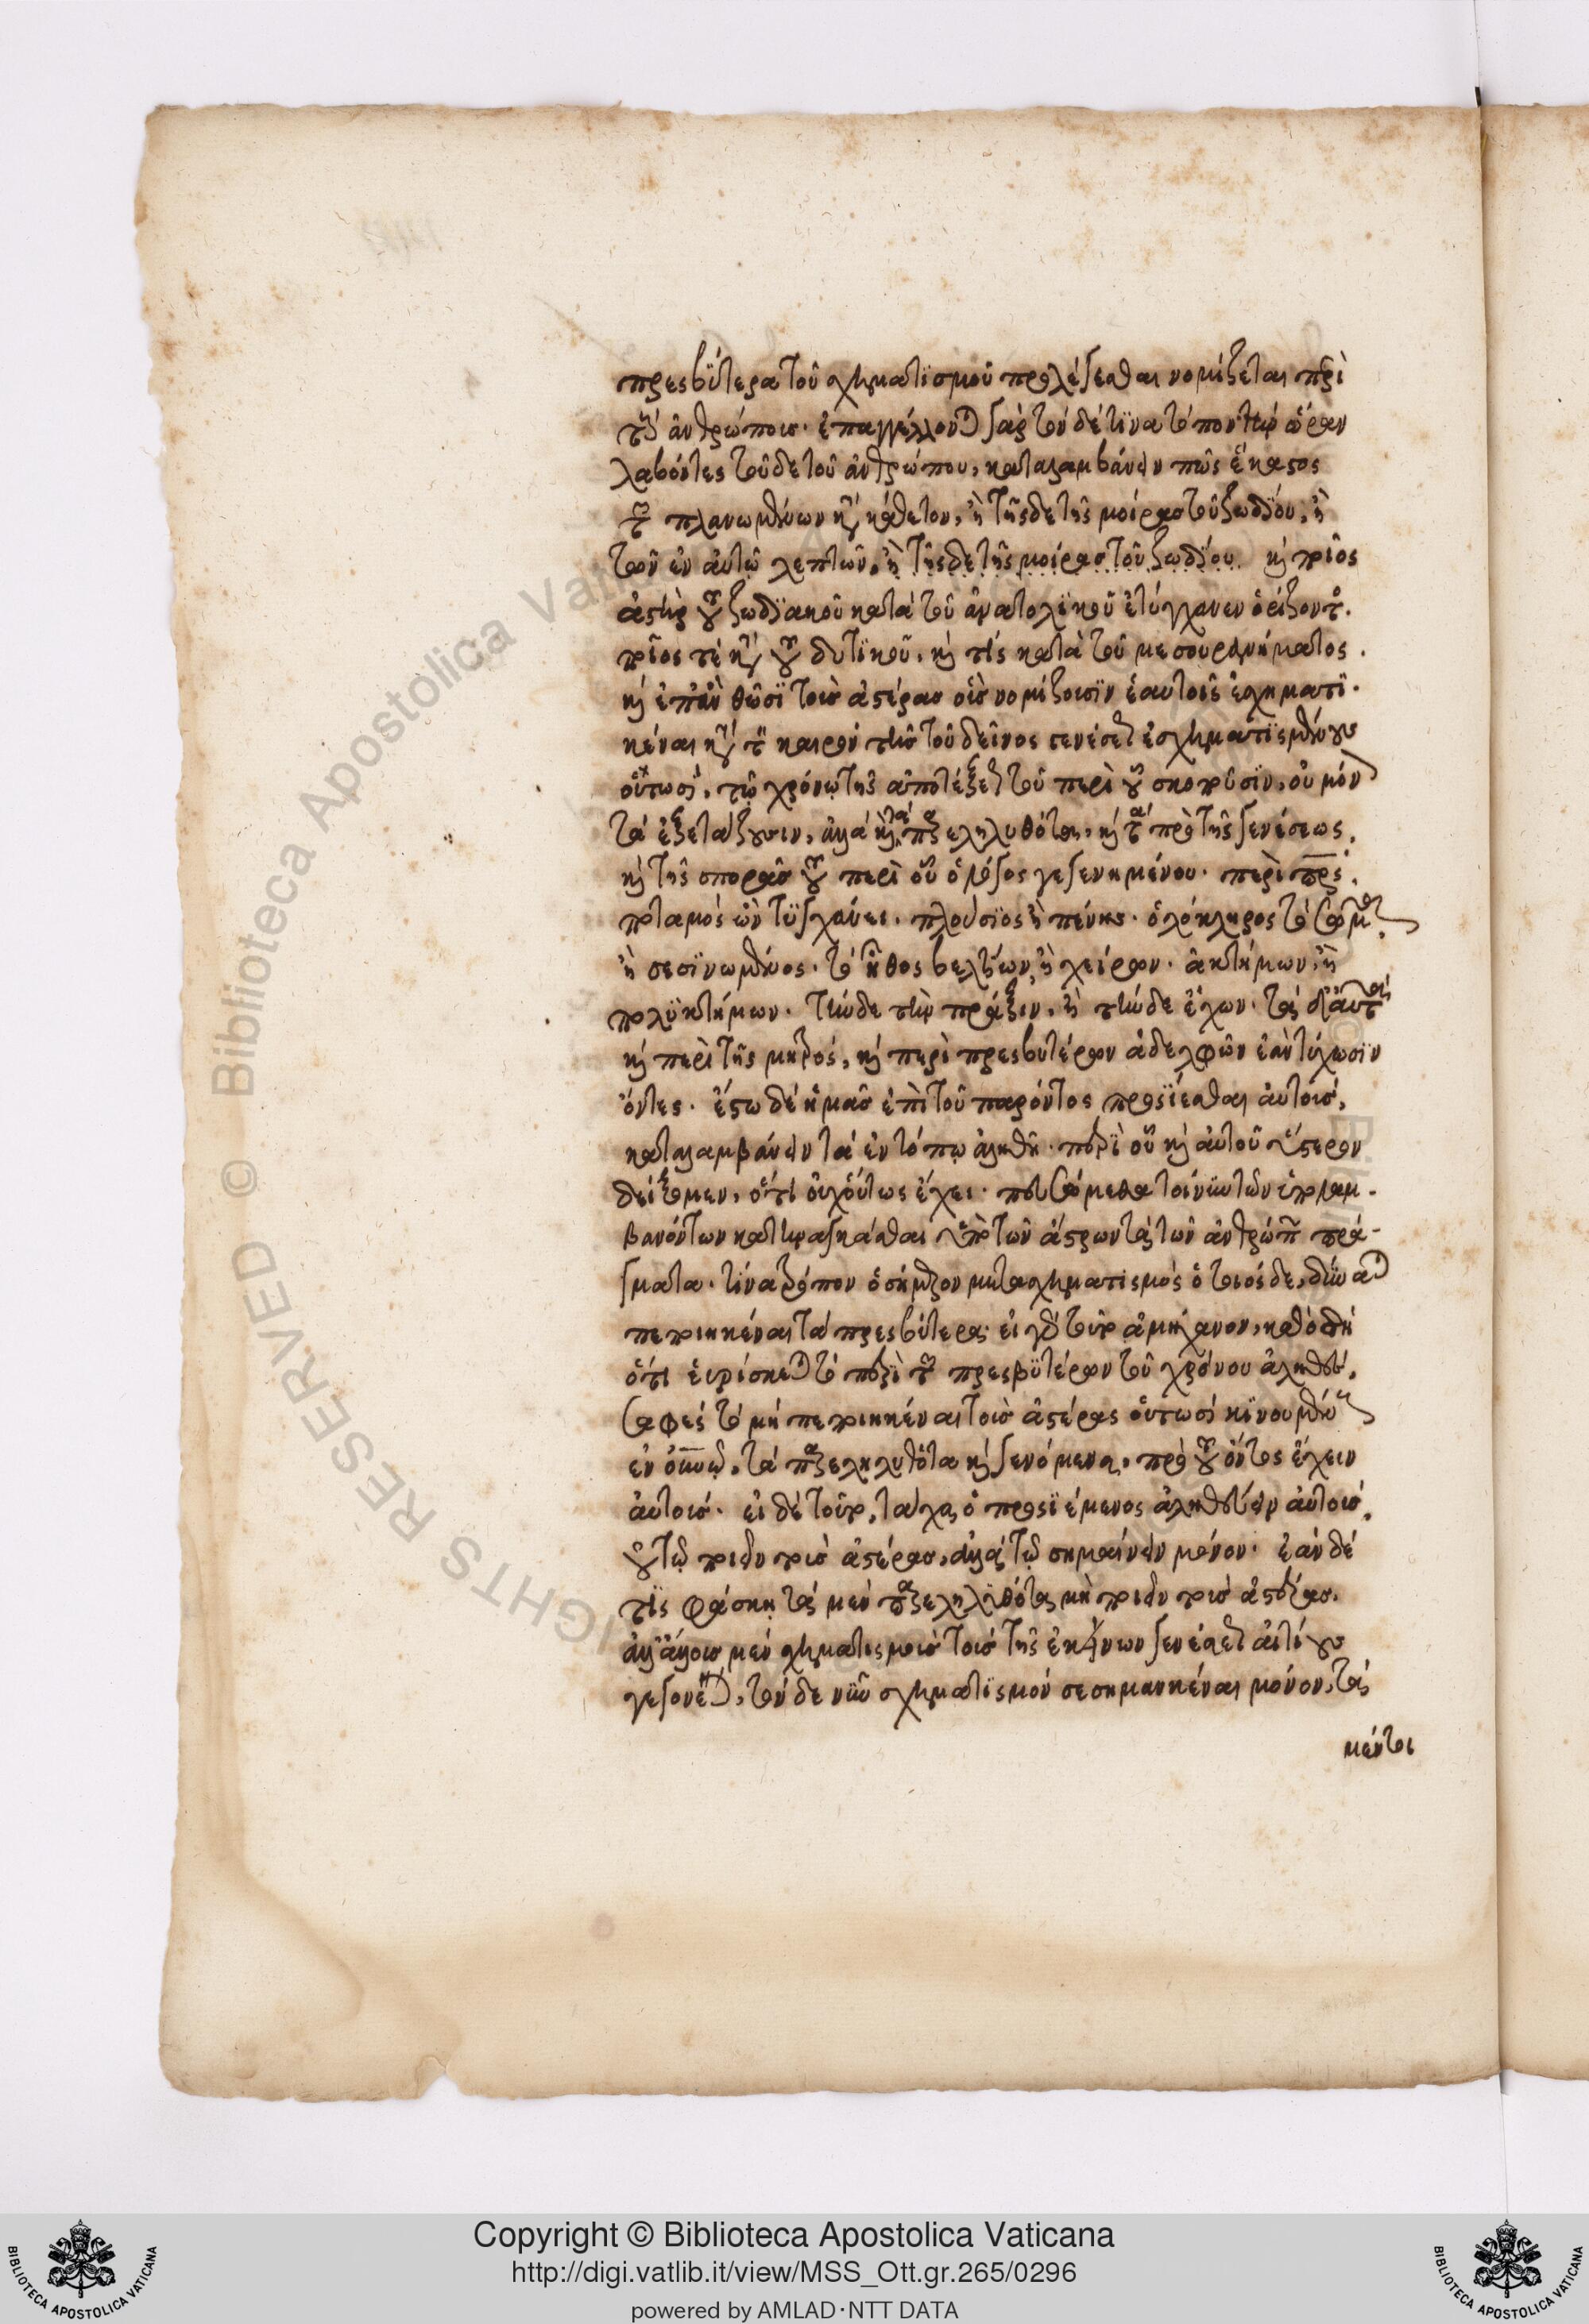 πρεσβύτερα τοῦ σχηματϊσμοῦ προλέγεσθαι νομίζεται περὶ
τῶν ἀνθρώποις. ἐπαγγέλλονται γὰρ τὸν δέ τϊνα τόπον τὴν ὥραν
λαβόντες τοῦδε τοῦ ἀνθρώπου, καταλαμβάνειν πῶς ἕκαστος
τῶν πλανωμένων κατὰ κάθετον, ἢ τῆσδε τῆς μοίρας τοῦ ζωδίου, ἢ
τῶν ἐν αὐτῷ λεπτῶν, ἢ τῆσδε τῆς μοίρας τοῦ ζωδίου καὶ ποῖος
ἀστὴρ τοῦ ζωδϊακοῦ κατὰ τοῦ ἀνατολϊκοῦ ἐτύγχανεν ὁρίζοντος.
ποῖος τὲ κατὰ τοῦ δυτϊκοῦ, καὶ τίς κατὰ τοῦ μεσουρανήματος.
καὶ ἐπὰν θῶσϊ τοὺς ἀστέρας οὓς νομίζουσϊν ἑαυτοῖς ἐσχηματϊ-
κέναι κατὰ τὸν καιρὸν τῆς τοῦ δεῖνος γενέσεως ἐσχηματϊσμένους
οὑτωσὶ, τῷ χρόνῳ τῆς ἀποτέξεως τοῦ περὶ οὗ σκοποῦσϊν, οὐ μόνον
τὰ ἐξετάζουσιν, ἀλλὰ καὶ τὰ παρεληλυθότα, καὶ τὰ πρὸ τῆς γενέσεως,
καὶ τῆς σπορᾶς τοῦ περὶ οὗ ὁ λόγος γεγενημένου. περὶ πρς,
ποταμὸς ὢν τϋγχάνει. πλούσϊος ἢ πένης. ὁλόκληρος τὸ σῶμα
ἢ σεσϊνωμένος. τὸ ἦθος βελτίων, ἢ χείρων. ἀκτήμων, ἢ
πολϋκτήμων. τήνδε τὴν πράξιν, ἢ τήνδε ἔχων. τὰ δ' αὐτὰ
καὶ περὶ τῆς μητρὸς, καὶ περὶ πρεσβυτέρων ἀδελφῶν ἐὰν τύχωσϊν
ὄντες. ἔστω δὲ ἡμᾶς ἐπὶ τοῦ παρόντος προσϊέσθαι αὐτοὺς,
καταλαμβάνειν τὰ ἐν τόπῳ ἀληθῆ. περὶ οὗ καὶ αὐτοῦ ὕστερον
δείξωμεν, ὅτι οὐχ οὕτως ἔχει. πευσώμεθα τοίνϋν τῶν ὑπολαμ-
βανόντων κατηναγκάσθαι ὑπὸ τῶν ἄστρων τὰ τῶν ἀνθρώπων πρά-
γματα. τίνα τρόπον ὁ σήμερον μὴ τασχηματισμὸς ὁ τοιόσδε, δύναται
πεποιηκέναι τὰ πρεσβύτερα. εἰ γὰρ τοῦτο ἀμήχανον, καθὸ δὴ
ὅτι εὑρίσκεται τὸ περὶ τῶν πρεσβϋτέρων τοῦ χρόνου ἀληθὲς,
σαφὲς τὸ μὴ πεποιηκέναι τοὺς ἀστέρας οὑτωσὶ κϊνουμένους
ἐν οὐρανῷ, τὰ παρεληλυθότα καὶ γενόμενα, πρὸ τοῦ ὄντος ἔχειν
αὐτοὺς. εἰ δὲ τοῦτο, τάχα ὁ προσϊέμενος ἀληθεύειν αὐτοὺς,
οὐ τῷ ποιεῖν τοὺς ἀστέρας, ἀλλὰ τῷ σημαίνειν μόνον. ἐὰν δέ
τϊς φάσκῃ τὰ μὲν παρεληλϋθότα μὴ ποιεῖν τοὺς ἀστέρας,
ἀλλ' ἄλλους μὲν σχηματισμοὺς τοὺς τῆς ἐκείνων γενέσεως αἰτίους
γεγονέναι, τὸν δὲ νῦν σχηματϊσμὸν σεσημαγκέναι μόνον, τὰ
μέντοι
Copyright © Biblioteca Apostolica Vaticana
http://digi.vatlib.it/view/MSS_Ott.gr.265/0296
powered by AMLAD·NTT DATA